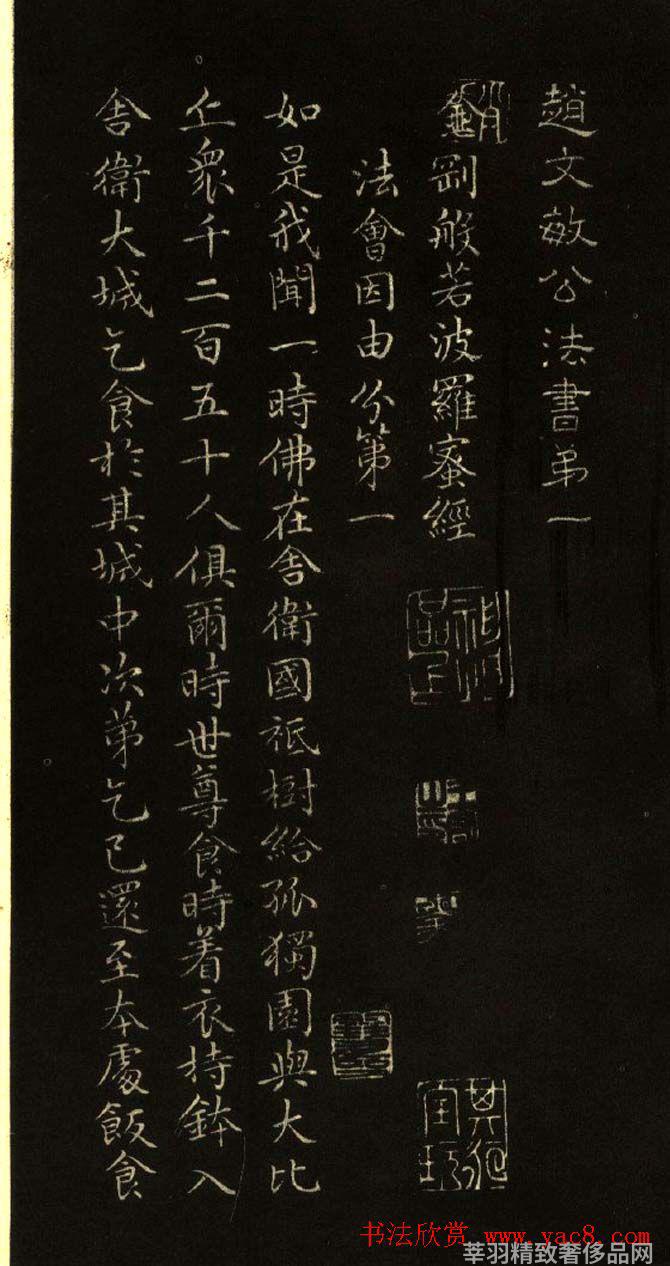 趙文敏公法書弟一
金剛般若波羅蜜經
法會因由分第一
如是我聞一時佛在舎衛國祇樹給孤獨園與大比
丘衆千二百五十人俱爾時世尊食時着衣持鉢入
舎衛大城乞食於其城中次第乞已還至本處飯食
书法欣赏 www.yac8.com
莘羽精致奢侈品网